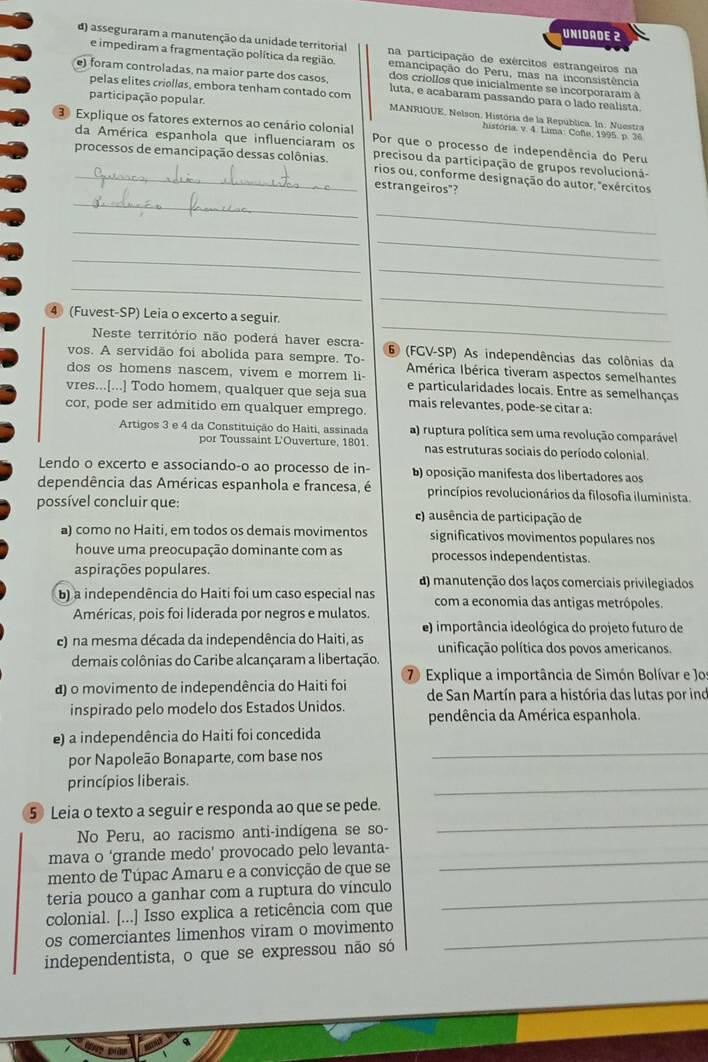 UNIDADE 2
d) asseguraram a manutenção da unidade territorial
e impediram a fragmentação política da região.
e) foram controladas, na maior parte dos casos,
pelas elites criollas, embora tenham contado com
participação popular.
3 Explique os fatores externos ao cenário colonial
da América espanhola que influenciaram os
processos de emancipação dessas colônias.
francesa.
4 (Fuvest-SP) Leia o excerto a seguir.
Neste território não poderá haver escra-
vos. A servidão foi abolida para sempre. To-
dos os homens nascem, vivem e morrem li-
vres...[...] Todo homem, qualquer que seja sua
cor, pode ser admitido em qualquer emprego.
Artigos 3 e 4 da Constituição do Haiti, assinada
por Toussaint L'Ouverture, 1801.
Lendo o excerto e associando-o ao processo de in-
dependência das Américas espanhola e francesa, é
possível concluir que:
a) como no Haiti, em todos os demais movimentos
houve uma preocupação dominante com as
aspirações populares.
b) a independência do Haiti foi um caso especial nas
Américas, pois foi liderada por negros e mulatos.
c) na mesma década da independência do Haiti, as
demais colônias do Caribe alcançaram a libertação.
d) o movimento de independência do Haiti foi
inspirado pelo modelo dos Estados Unidos.
e) a independência do Haiti foi concedida
por Napoleão Bonaparte, com base nos
princípios liberais.
5 Leia o texto a seguir e responda ao que se pede.
No Peru, ao racismo anti-indígena se so-
mava o 'grande medo' provocado pelo levanta-
mento de Túpac Amaru e a convicção de que se
teria pouco a ganhar com a ruptura do vínculo
colonial. [...] Isso explica a reticência com que
os comerciantes limenhos viram o movimento
independentista, o que se expressou não só
na participação de exércitos estrangeiros na
emancipação do Peru, mas na inconsistência
dos criollos que inicialmente se incorporaram à
luta, e acabaram passando para o lado realista.
MANRIQUE, Nelson. História de la República. In: Nuestra
história. v. 4. Lima: Cofie, 1995. p. 36.
Por que o processo de independência do Peru
precisou da participação de grupos revolucioná-
rios ou, conforme designação do autor, "exércitos
estrangeiros"?
6 (FGV-SP) As independências das colônias da
América Ibérica tiveram aspectos semelhantes
e particularidades locais. Entre as semelhanças
mais relevantes, pode-se citar a:
a) ruptura política sem uma revolução comparável
nas estruturas sociais do período colonial.
b) oposição manifesta dos libertadores aos
princípios revolucionários da filosofia iluminista.
c) ausência de participação de
significativos movimentos populares nos
processos independentistas.
d) manutenção dos laços comerciais privilegiados
com a economia das antigas metrópoles.
e) importância ideológica do projeto futuro de
unificação política dos povos americanos.
7 Explique a importância de Simón Bolívar e Jos
de San Martín para a história das lutas por ind
pendência da América espanhola.